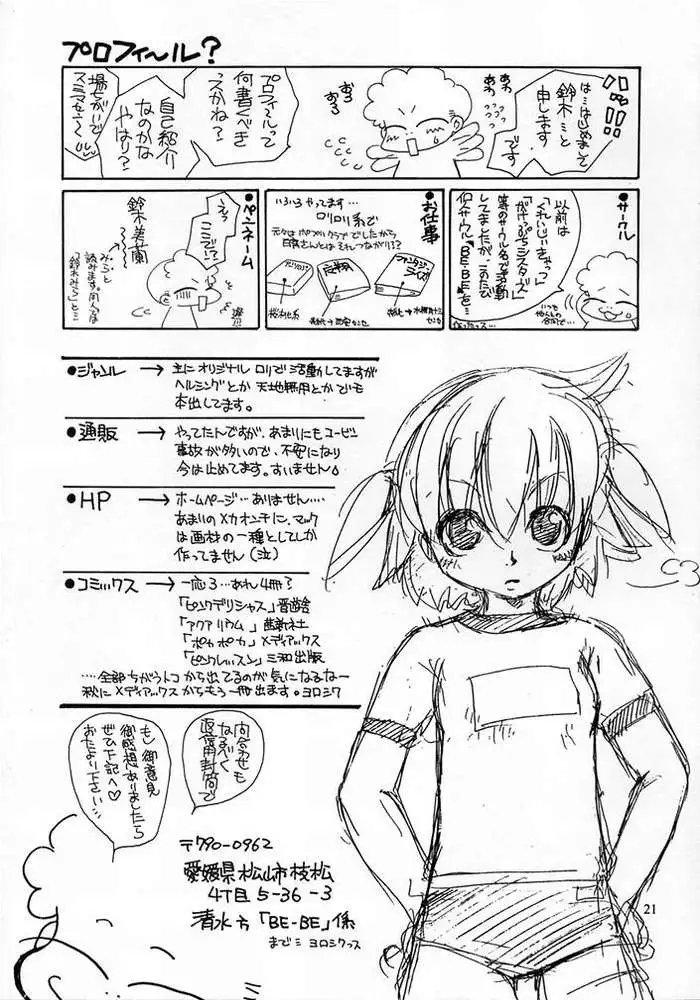 プロフィ〜ル?
は…はじめまして
鈴木…と
申します
です
あわ
あわ
おろ
おろ
プロフィールって
何書くべき
っスかね?
自己紹介
なのかな
やはり?
場ちがいで
スミマセン〜
●サークル
以前は
「くれいじぃきゃっつ」
「がけっぷちシスターズ」
等のサークル名で活動
してましたが、このたび
個人サークル「BE-BE」を…
●お仕事
いろいろやってます…
ロリロリ系で
●ペンネーム
えっ
ここで?
鈴木美蘭
みらと
読みます。同人では
「鈴木みら」と…
●ジャンル → 主にオリジナルロリで活動してますが
ヘルシングとか天地無用とかでも
本出してます。
●通販 → やってたんですが、あまりにもユービン
事故が多いので、不安になり
今は止めてます。すいません。
●HP → ホームページ…ありません…
あまりのメカオンチに、マック
は画材の一種としてしか
作ってません(泣)
●コミックス → 一応3…あれ4冊?
「ピンクデリシャス」晋遊舎
「アクアリウム」茜新社
「ポカポカ」メディアックス
「ピンクレッスン」三和出版
…全部ちがうトコから出てるのが気になるなー
秋にメディアックスからもう一冊出ます。ヨロシク
もし御意見
御感想ありましたら
ぜひ下記へ♡
おたより下さい…
問合わせも
なるべく
返信用封筒で
〒790-0962
愛媛県松山市枝松
4丁目5-36-3
清水方「BE-BE」係
まで ヨロシクっス
21